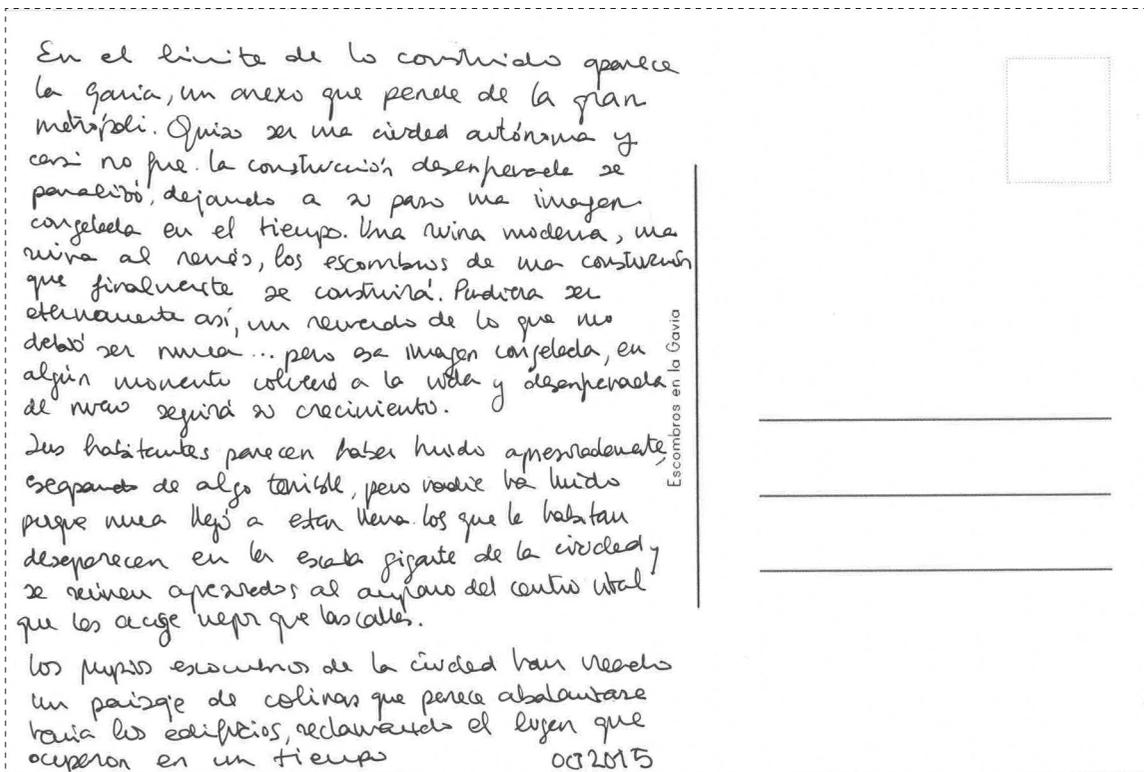 En el límite de lo construido aparece
la Gavia, un anexo que pende de la gran
metrópoli. Quiso ser una ciudad autónoma y
casi no fue. La construcción desesperada se
paralizó, dejando a su paso una imagen
congelada en el tiempo. Una ruina moderna, una
ruina al revés, los escombros de una construcción
que finalmente se construirá. Pudiera ser
eternamente así, un recuerdo de lo que no
debió ser nunca... pero esa imagen congelada, en
algún momento volverá a la vida y desesperada
de nuevo seguirá su crecimiento.
Sus habitantes parecen haber huido apresuradamente,
escapando de algo terrible, pero nadie ha huido
porque nunca llegó a estar llena. Los que la habitan
desaparecen en la escala gigante de la ciudad y
se reúnen apresurados al amparo del centro
que los acoge mejor que las calles.
Los propios escombros de la ciudad han creado
un paisaje de colinas que parece abalanzarse
hacia los edificios, reclamando el lugar que
ocuparon en un tiempo
OCT 2015
Escombros en la Gavia